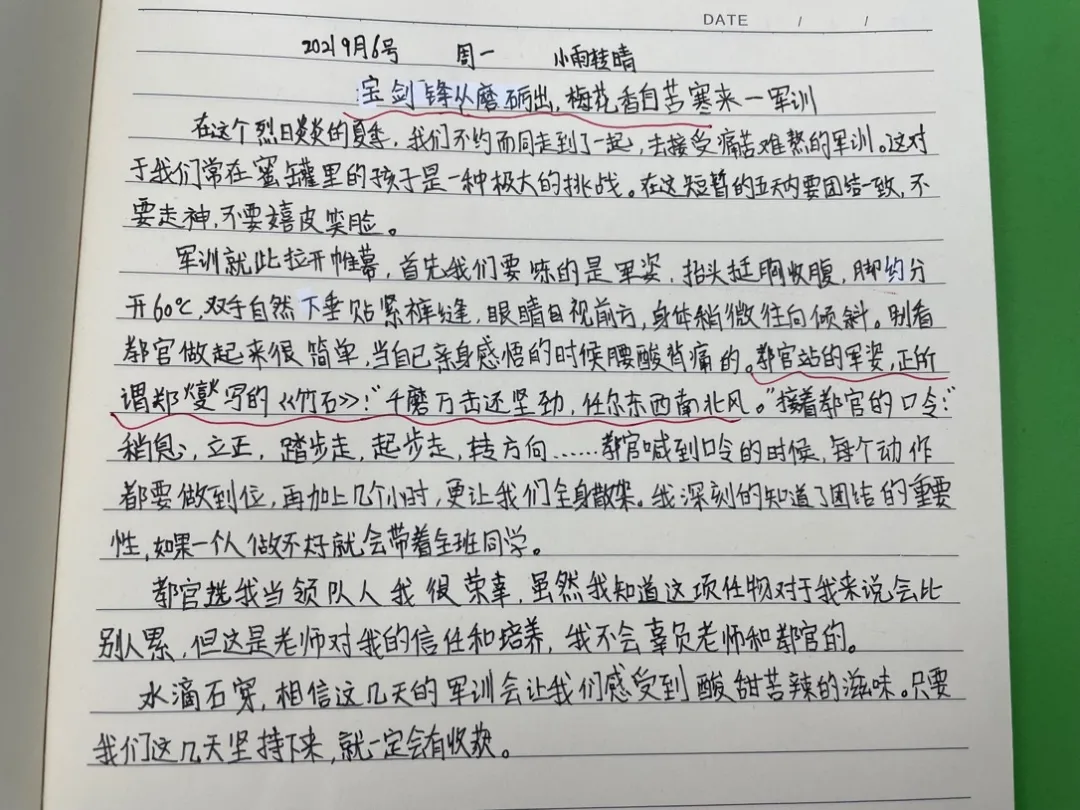 DATE / /
2021 9月6号 周一 小雨转晴
宝剑锋从磨砺出，梅花香自苦寒来—军训
在这个烈日炎炎的夏季，我们不约而同走到了一起，去接受痛苦难熬的军训。这对
于我们常在蜜罐里的孩子是一种极大的挑战。在这短暂的五天内要团结一致，不
要走神，不要嬉皮笑脸。
军训就此拉开帷幕，首先我们要练的是军姿，抬头挺胸收腹，脚约分
开60℃，双手自然下垂贴紧裤缝，眼睛目视前方，身体稍微往向倾斜。别看
教官做起来很简单，当自己亲身感悟的时候腰酸背痛的。教官站的军姿，正所
谓郑燮写的《竹石》：“千磨万击还坚劲，任尔东西南北风。”接着教官的口令：
稍息，立正，踏步走，起步走，转方向……教官喊到口令的时候，每个动作
都要做到位，再加上几个小时，更让我们全身散架。我深刻的知道了团结的重要
性，如果一个人做不好就会带着全班同学。
教官选我当领队人我很荣幸，虽然我知道这项任物对于我来说会比
别人累，但这是老师对我的信任和培养，我不会辜负老师和教官的。
水滴石穿，相信这几天的军训会让我们感受到酸甜苦辣的滋味。只要
我们这几天坚持下来，就一定会有收获。